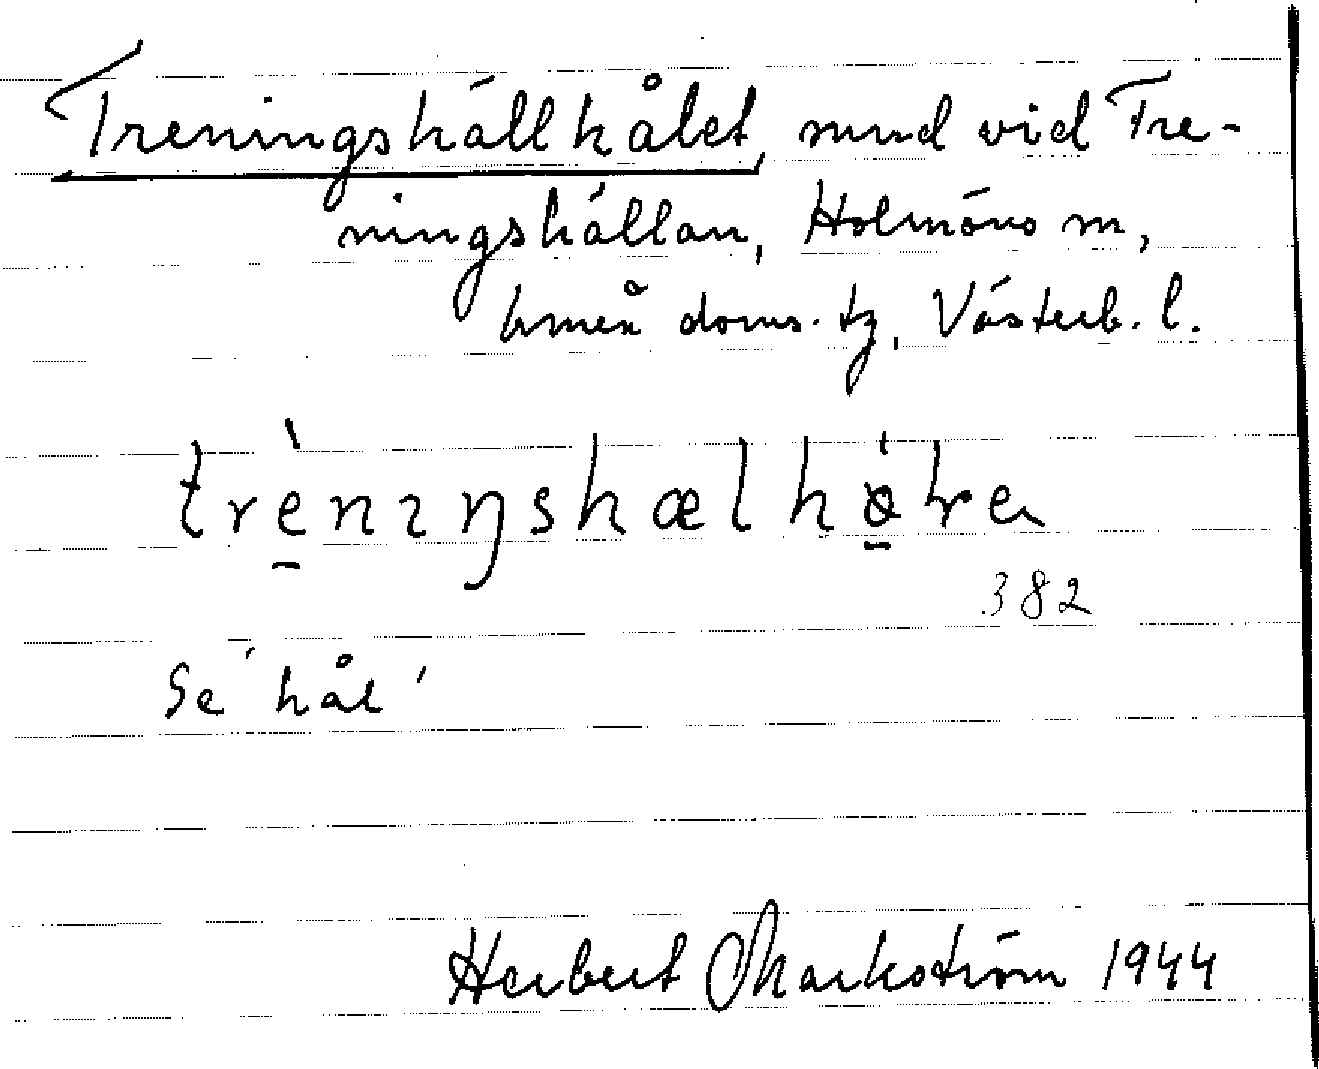 Treningshällhålet, sund vid Tre-
ningshällan, Holmöns sn,
Umeå doms. tg, Västerb. l.
trèniŋshælhå̀ɽe
382
Se 'hål'
Herbert Markström 1944